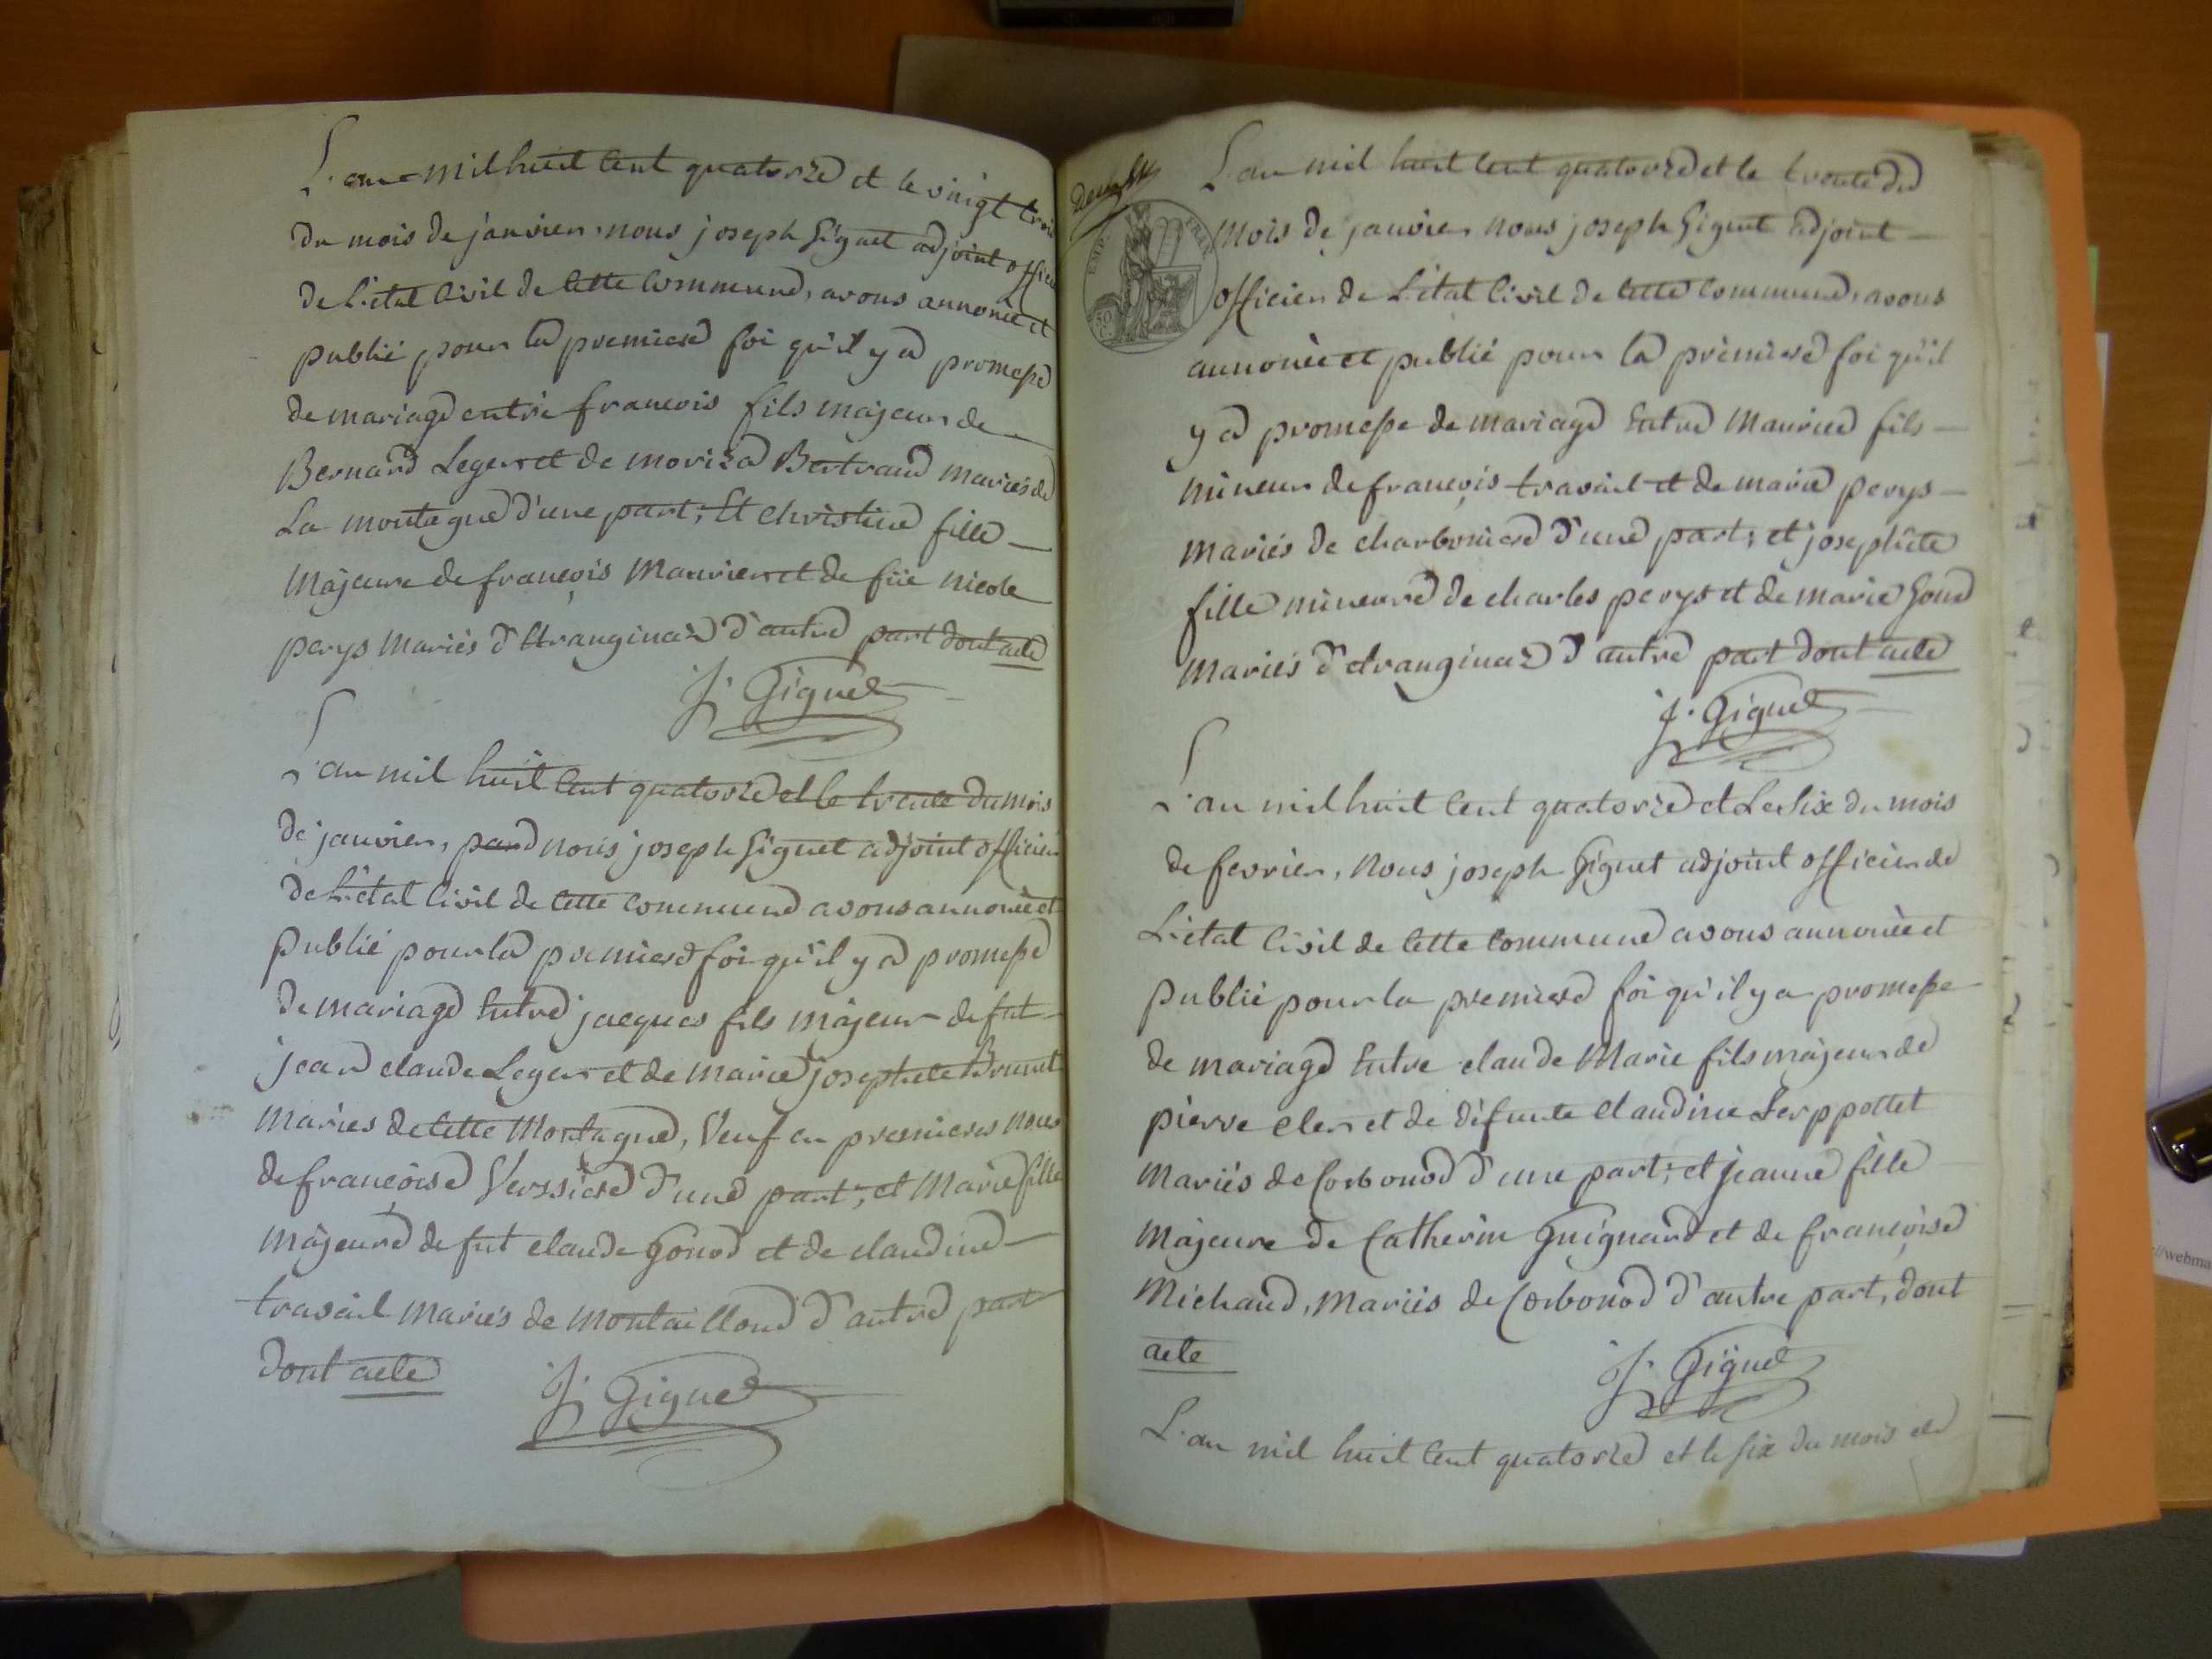 L'an mil huit cent quatorze et le vingt trois
du mois de janvier, nous joseph Giguet adjoint officier
de L'état Civil de Cette Commune, avons annoncé et
publié pour la premiere foi qu'il y a promesse
de mariage entre francois fils majeur de
Bernard Leger et de moriza Bertrand mariés de
La montagne d'une part; Et Christine fille
Majeure de françois Maurier et de füe nicole
perys mariés d'Etranginaz d'autre part dont acte
J. Giguet
L'an mil huit Cent quatorze et le trente du mois
de janvier, par nous joseph Giguet adjoint officier
de L'état Civil de Cette Commune avons annoncé et
publié pour la premiere foi qu'il y a promesse
de mariage Entre jacques fils majeur de fut
jean claude Leger et de marie josephete Brunet
mariés de Cette Montagne, Veuf en premieres noces
de françoise Verssiere d'une part; et Marie fille
majeure de fut claude Gonod et de claudine
travail mariés de Montaillond d'autre part
dont acte
J. Giguet
EMP. FRAN.
50 C.
L'an mil huit Cent quatorze et le trente du
mois de janvier nous joseph Giguet adjoint
officier de L'état Civil de Cette Commune, avons
annoncé et publié pour la premiere foi qu'il
y a promesse de mariage Entre Maurice fils
mineur de françois travail et de marie perys
mariés de charboniere d'une part; et josephete
fille mineure de charles perys et de marie Gonod
mariés d'etranginaz d'autre part dont acte
J. Giguet
L'an mil huit Cent quatorze et Le Six du mois
de fevrier, Nous joseph Giguet adjoint officier de
L'état Civil de Cette Commune avons annoncé et
publié pour la premiere foi qu'il y a promesse
de mariage Entre claude Marie fils majeur de
pierre cler et de défunte Claudine Serppollet
mariés de Corbonod d'une part; et jeanne fille
Majeure de Catherin Guignard et de françoise
Michaud, Mariés de Corbonod d'autre part, dont
acte
J. Giguet
L'an mil huit Cent quatorze et le six du mois de
//webma